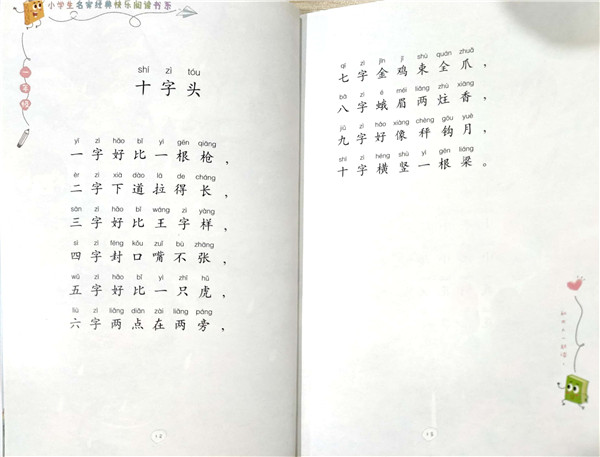 小学生名家经典快乐阅读书系
一年级
shí zì tóu
十字头
yī zì hǎo bǐ yì gēn qiāng
一字好比一根枪，
èr zì xià dào lā de cháng
二字下道拉得长，
sān zì hǎo bǐ wáng zì yàng
三字好比王字样，
sì zì fēng kǒu zuǐ bù zhāng
四字封口嘴不张，
wǔ zì hǎo bǐ yì zhī hǔ
五字好比一只虎，
liù zì liǎng diǎn zài liǎng páng
六字两点在两旁，
qī zì jīn jī shù quán zhuǎ
七字金鸡束全爪，
bā zì é méi liǎng zhù xiāng
八字蛾眉两炷香，
jiǔ zì hǎo xiàng chèng gōu yuè
九字好像秤钩月，
shí zì héng shù yì gēn liáng
十字横竖一根梁。